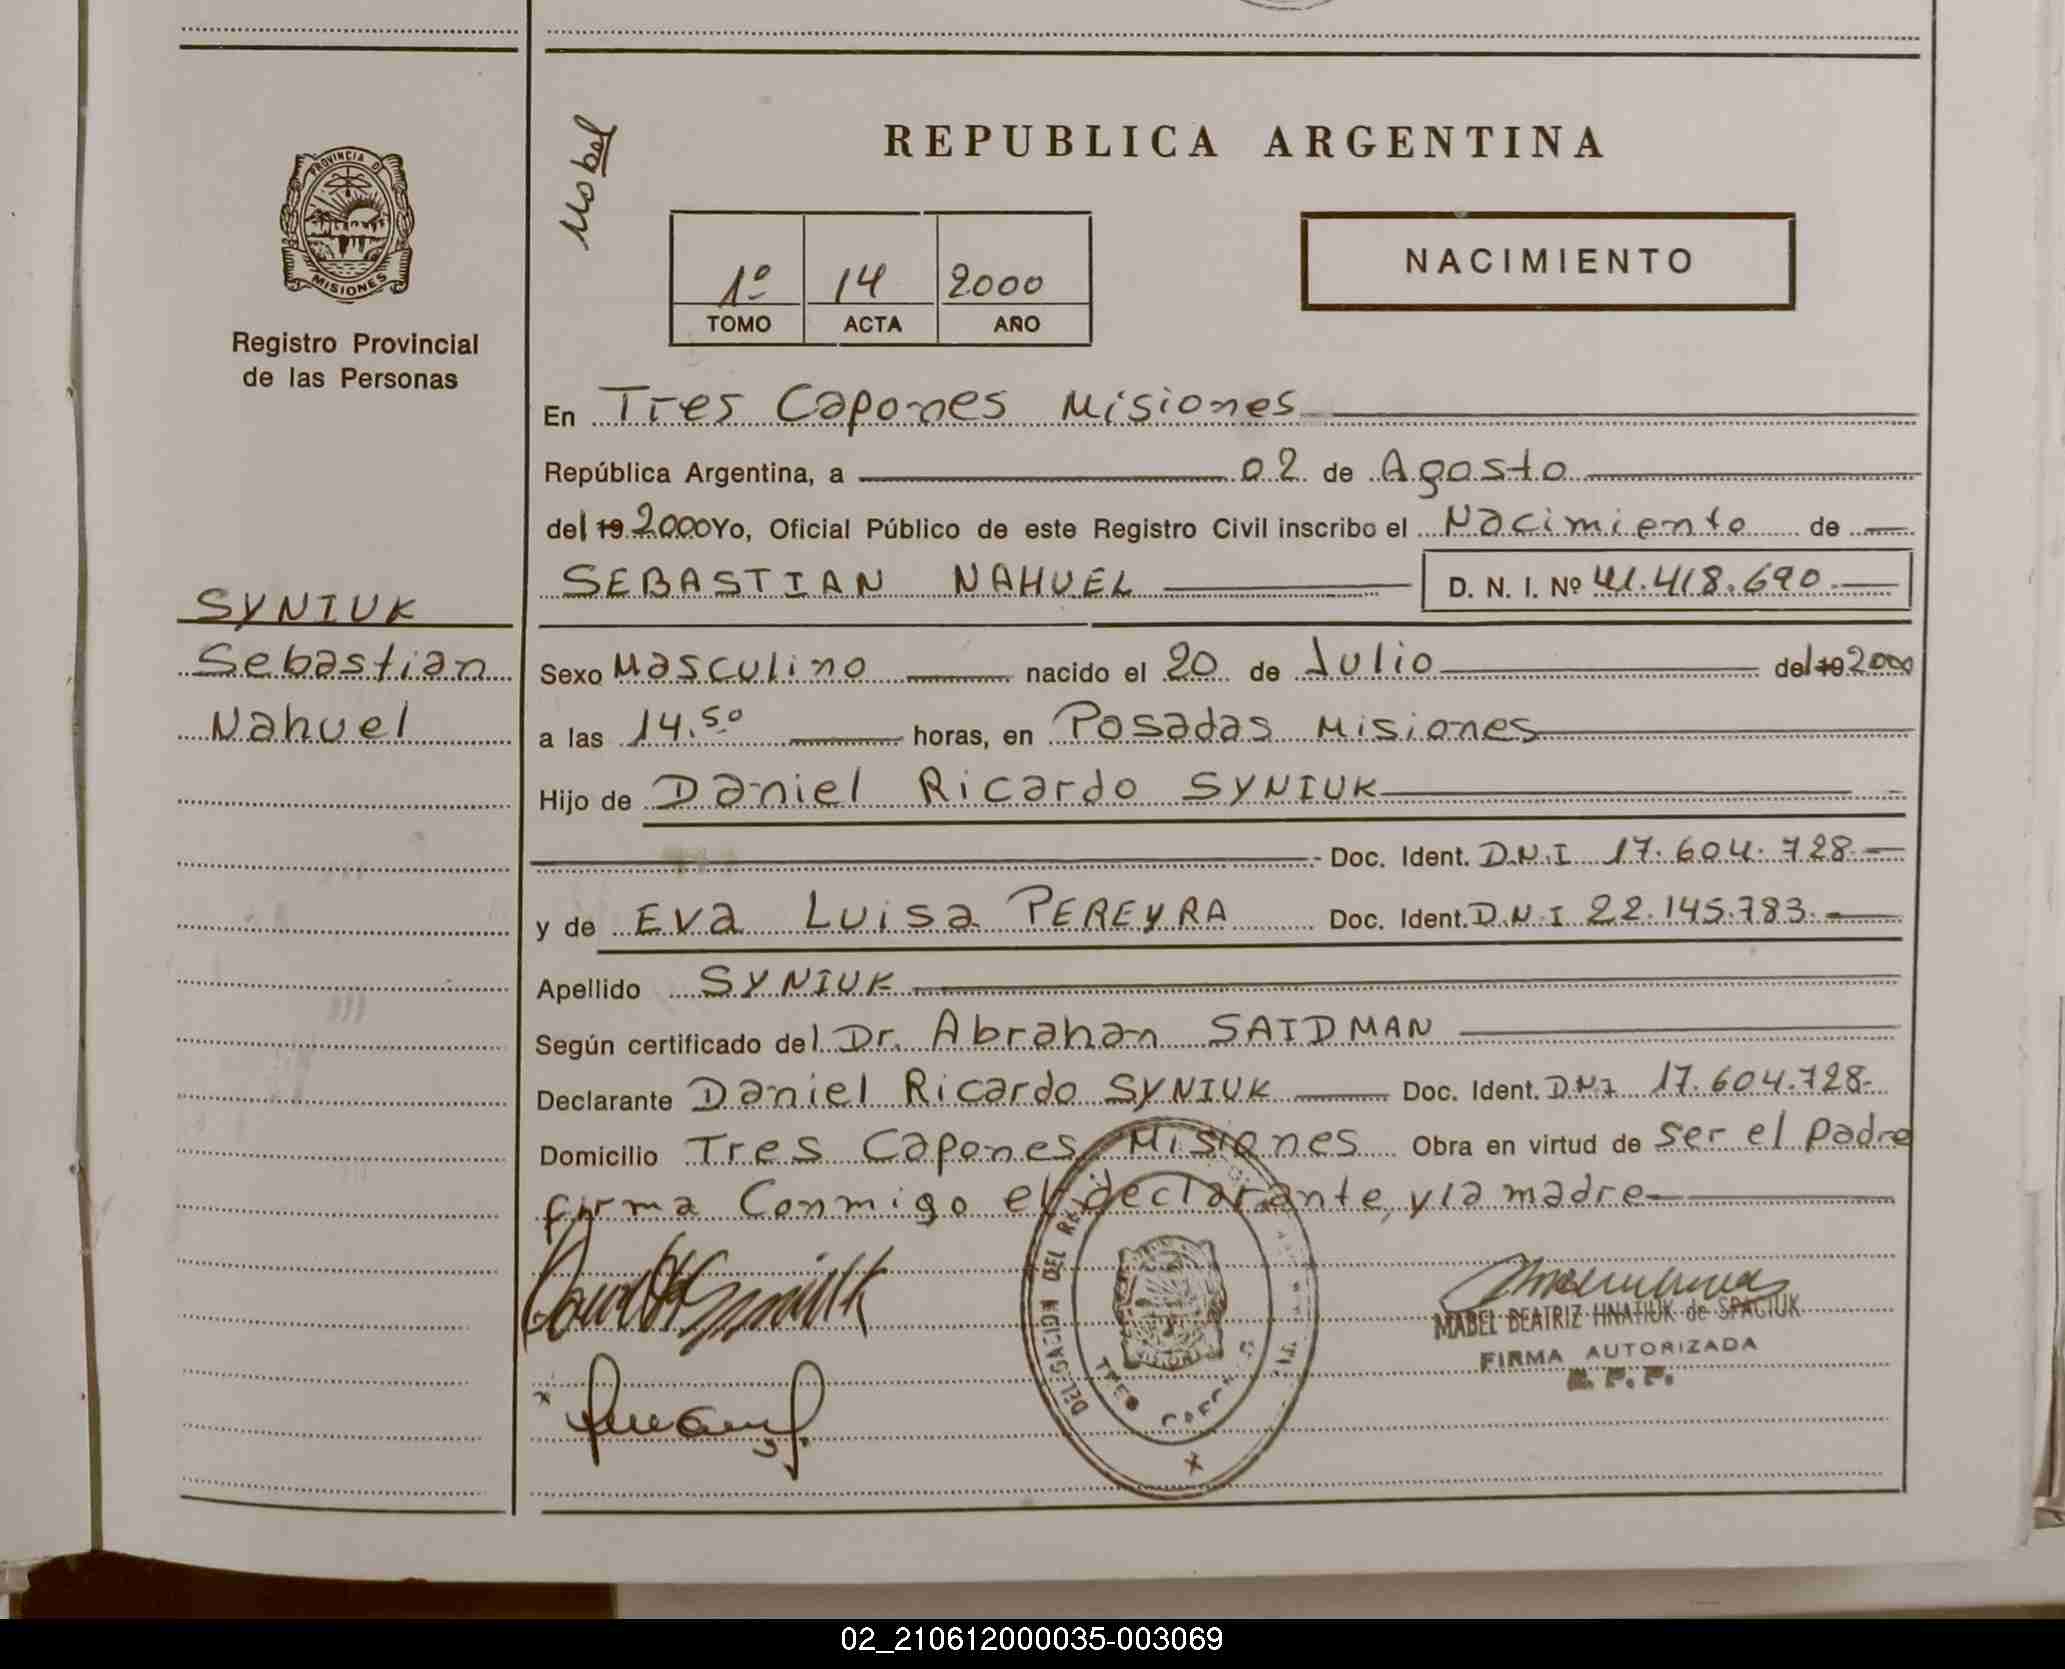 PROVINCIA DE
MISIONES
Registro Provincial
de las Personas
SYNIUK
Sebastian
Nahuel
Mabel
REPUBLICA ARGENTINA
1º 14 2000
TOMO ACTA AÑO
NACIMIENTO
En Tres Capones Misiones
República Argentina, a 02 de Agosto
del 19 2000 Yo, Oficial Público de este Registro Civil inscribo el Nacimiento de
SEBASTIAN NAHUEL D. N. I. Nº 41.418.690.
Sexo Masculino nacido el 20 de Julio del 19 2000
a las 14.50 horas, en Posadas Misiones
Hijo de Daniel Ricardo SYNIUK
Doc. Ident. D.N.I 17.604.728.
y de Eva Luisa PEREYRA Doc. Ident. D.N.I 22.145.783.
Apellido SYNIUK
Según certificado del Dr. Abrahan SAIDMAN
Declarante Daniel Ricardo SYNIUK Doc. Ident. DNI 17.604.728.
Domicilio Tres Capones Misiones Obra en virtud de ser el padre
firma Conmigo el declarante, y la madre
DELEGACION DEL
MABEL BEATRIZ HNATIUK de SPACIUK
FIRMA AUTORIZADA
R. P. P.
02_210612000035-003069